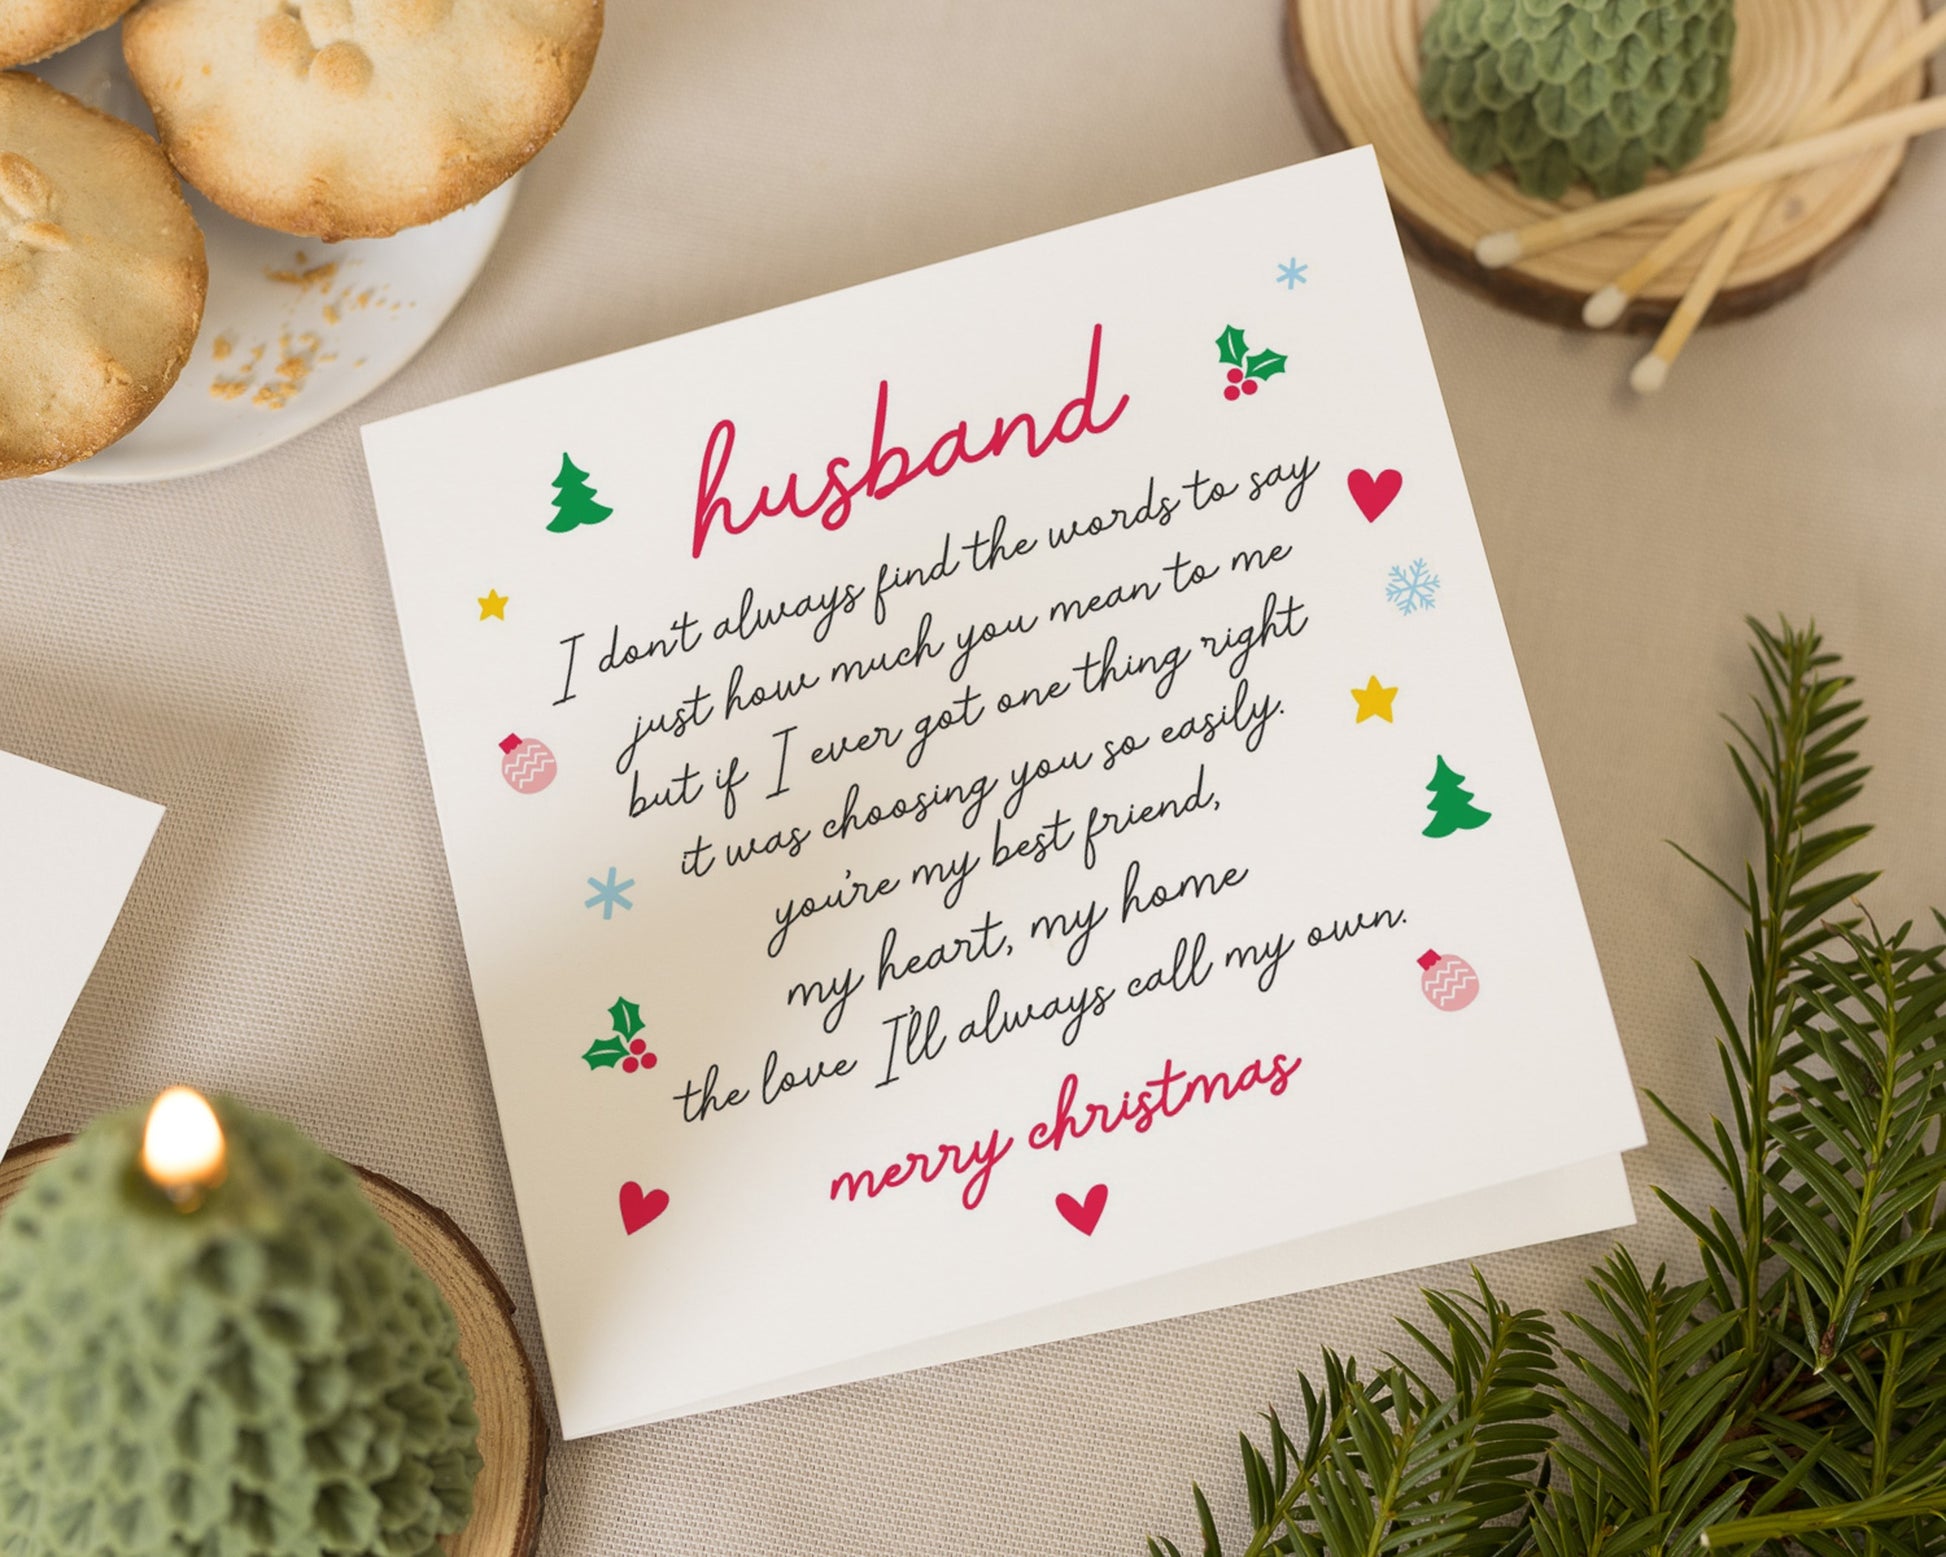 husband
I don't always find the words to say
just how much you mean to me
but if I ever got one thing right
it was choosing you so easily.
you're my best friend,
my heart, my home
the love I'll always call my own.
merry christmas